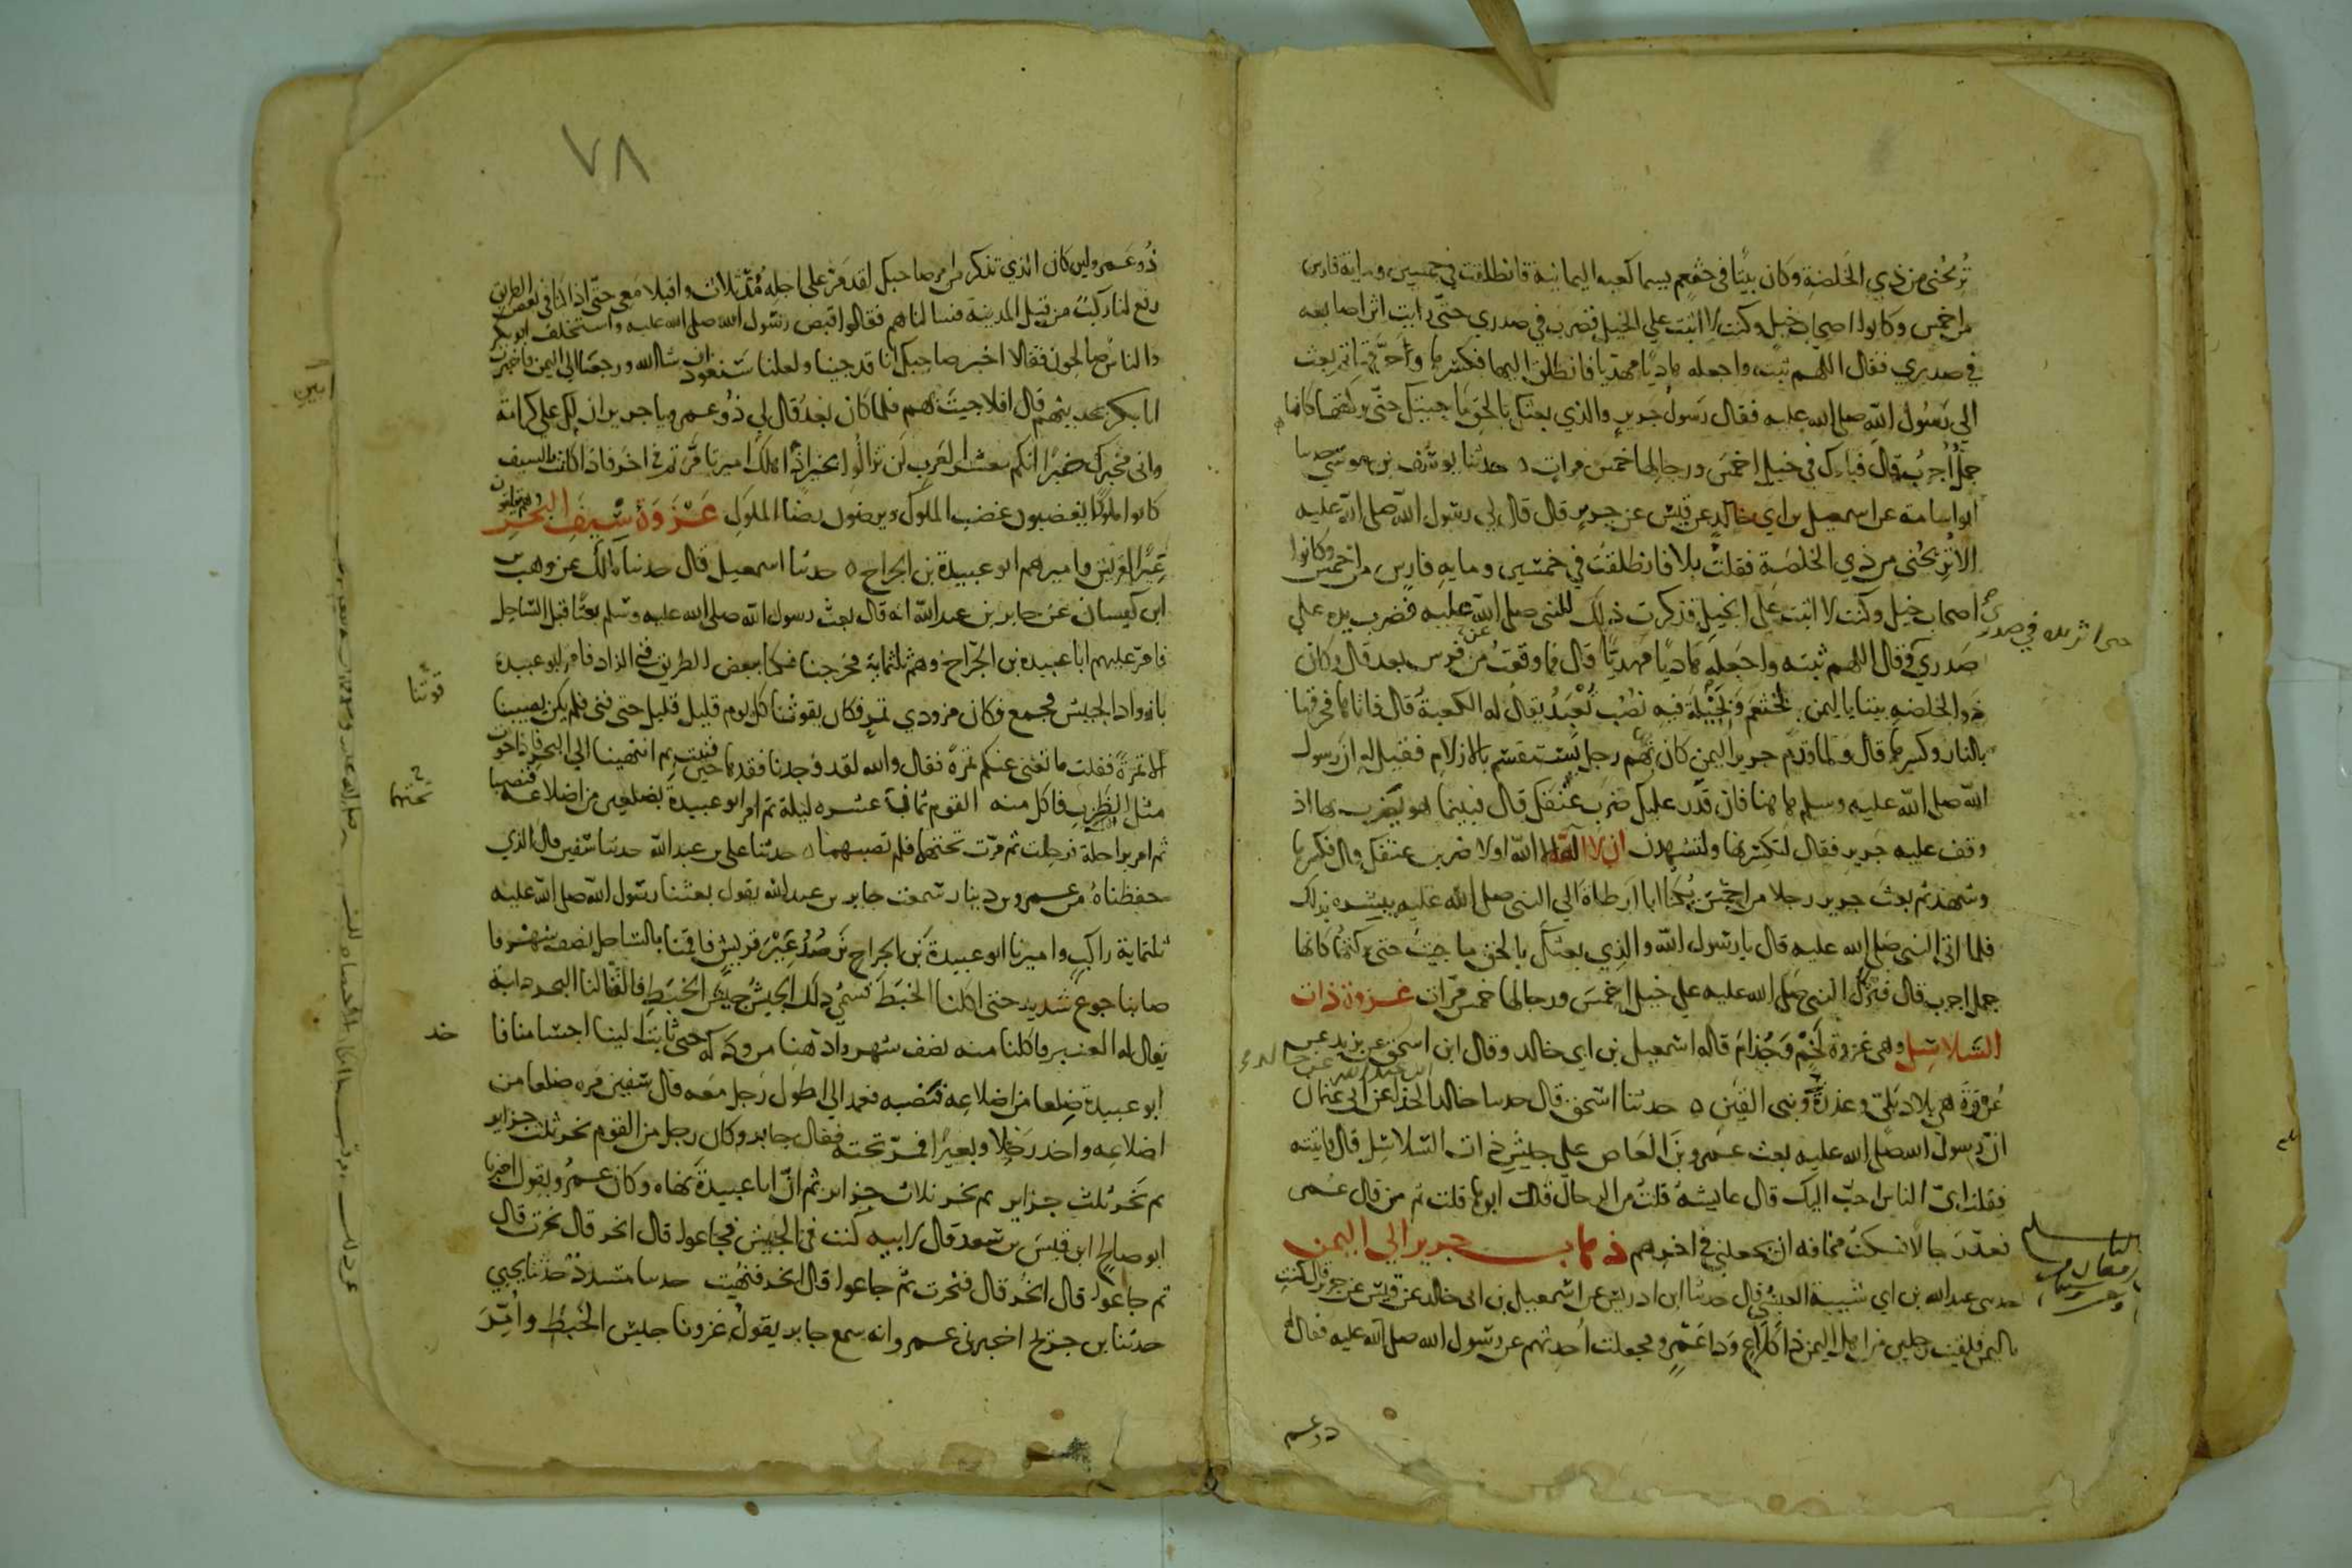 تُرِيحُني من ذي الخَلَصَةِ وكان بيتًا في خثعم يسما كعبه اليمانية فانطلقت في خمسين وماية فارس
من احمس وكانوا اصحاب خيل وكنت لا اثبت علي الخيل فضرب في صدري حتّى رايت اثر اصابعه
في صدري فقال اللّهم ثبته واجعله هاديًا مهديا فانطلق اليها فكسرها وحرّقها ثم بعث
الي رسُول الله صلى الله عليه فقال رسول جرير والذي بعثك بالحق ما جيتك حتّى تركتها كانها
جملٌ أجربُ قال فبارك في خيل احمس ورجالها خمس مرات ٥ حدثنا يوسف بن موسي حدثنا
ابو اسامة عن اسمعيل بن ابي خالد عن قيس عن جرير قال قال لي رسول الله صلى الله عليه
الا تُرِيحُني من ذي الخلصَة فقلتُ بلا فانطلقت في خمسين وماية فارس من احمس وكانوا
اصحاب خيل وكنت لا اثبت علي الخيل فذكرت ذلك للنبي صلى الله عليه فضرب يده علي
صدري
صَدري وقال اللهم ثبته واجعله هاديًا مهديًّا قال فما وقعتُ عن فرس بعد قال وكان
ذو الخلصه بيتا باليمن لخثعم وبَجيلة فيه نُصُب تُعْبَدُ يقال له الكعبةُ قال فاتاها فحرقها
بالنار وكسرها قال ولما قدم جرير اليمن كان بها رجل يستقسم بالازلام فقيل له ان رسول
الله صلى الله عليه وسلم هاهنا فان قدر عليك ضرب عنقك قال فبينما هو يضرب بها اذ
وقف عليه جرير فقال لتكسرنها ولتشهدن ان لا اله الا الله اولا ضربن عنقك قال فكسرها
وشهد ثم بعث جرير رجلا من احمس يُكنا ابا ارطاة الي النبي صلى الله عليه يبشره بذلك
فلما اتى النبي صلى الله عليه قال يا رسول الله والذي بعثك بالحق ما جيت حتى تركتها كانها
جمل اجرب قال فبرّك النبي صلى الله عليه علي خيل احمس ورجالها خمس مرّات غزوة ذات
السّلاسِل وهي غزوة لَخْم وجُذام قاله اسمعيل بن ابي خالد وقال ابن اسحق عن يزيد عن
عُروة هي بلاد بَليّ وعذرة وبني القين ٥ حدثنا اسحق قال حدثنا خالد الحذا عن ابي عثمان
انّ رسول الله صلى الله عليه بعث عمرو بن العاص علي جيش ذات السّلاسِل قال فاتيته
فقلت ايّ الناس احبّ اليك قال عايشة قلتُ من الرجال قال ابوها قلت ثم من قال عمر
فعدّ رجالا فسكتُ مخافه ان يجعلني في اخرهم ذهاب جرير الي اليمن
حدثني عبد الله بن ابي شيبة العبسي قال حدثنا ابن ادريس عن اسمعيل بن ابي خالد عن قيس عن جرير قال كنت
باليمن فلقيت رجلين من اهل اليمن ذا كلاع وذا عمرو فجعلت أحدثهم عن رسول الله صلى الله عليه فقال له
ذو عمر
٧٨
ذُو عَمرو لين كان الذي تذكر من امر صاحبك لقد مَرّ على اجله مُذ ثلاث واقبلا معي حتّى اذا كنا في بعض الطريق
رفع لنا ركبٌ من قِبَل المدينة فسالناهم فقالوا قبض رسول الله صلى الله عليه واستخلف ابو بكر
والناسُ صالحون فقالا اخبر صاحبك انا قد جينا ولعلنا سَنعُود ان شا الله ورجعا الي اليمن فاخبرت
ابا بكر بحديثهم قال افلا جيت بهم فلما كان بَعدُ قال لي ذُو عمرو يا جرير ان لك علي كرامة
واني مخبرك خبرًا انكم معشر العرب لن تزالُوا بخير اذا هلك امير تامّرتم في اخر فاذا كانت بالسيف
كانوا ملوكًا يغضبون غضب الملوك ويرضون رضا الملوك غَزوَة سِيفِ البَحْرِ
عِيرًا لقريش واميرهم ابو عبيدة بن الجراح ٥ حدثنا اسمعيل قال حدثنا مالك عن وهب
ابن كيسان عن جابر بن عبد الله انه قال بعث رسول الله صلى الله عليه وسلم بعثا قِبل السّاحِل
فامّر عليهم ابا عبيده بن الجرّاح وهم ثلثماية فخرجنا فكنا ببعض الطريق فني الزاد فامر ابو عبيدة
بازواد الجيش فجمع فكان مزودي تمر فكان يقوتنا كل يوم قليل قليل حتى فني فلم يكن يصيبنا
قوّتنا
الا تمرةً فقلت ما تغني عنكم تمرة فقال والله لقد وجدنا فقدها حين فنيت ثم انتهينا الي البحر فاذا حوت
مثل الظَرِبِ فاكل منه القوم ثماني عشره ليلة ثم امر ابو عبيدة بضلعين من اضلاعه فنصبا
تحتهما
ثم امر براحلة فرحلت ثم مرّت تحتهما فلم تصبهما ٥ حدثنا علي بن عبد الله حدثنا سفين قال الذي
حفظناهُ من عمرو بن دينار سمعت جابر بن عبد الله يقول بعثنا رسول الله صلى الله عليه
ثلثماية راكب واميرنا ابو عبيدة بن الجراح نَرصُدُ عِيرَ قريش فاقمنا بالساحل نصف شهر فا
صابنا جوع شديد حتى اكلنا الخبَط فسُمي ذلك الجيشُ جيش الخبَطِ فالقا لنا البحر دابة
يقال له العنبر فاكلنا منه نصف شهر وادهنا من ودكه حتى ثابت الينا اجسامنا فا
خد
ابو عبيدة ضِلعا من اضلاعِه فنصبه فعمد الي اطول رَجل معه قال سفين مره ضلعا من
اضلاعِه واخد رَحْلا وبعيرًا فمرّ تحته فقال جابر وكان رجل من القوم نحر ثلث جزاير
ثم نَحَر ثلث جزاير ثم نحر ثلاث جزاير ثم انّ ابا عبيدة نهاه وكان عمرُو يقول اخبرنا
ابو صالح ان قيس بن سعد قال لابيه كنت في الجيش فجاعوا قال انحر قال نحرت قال
ثم جاعوا قال انحر قال فنحرت ثم جاعوا قال انحر فنُهيت حدثنا مسدد حدثنا يحيي
حدثنا بن جريج اخبرني عمرو انه سمع جابر يقولُ غزونا جيش الخَبَط وأُمِّرَ